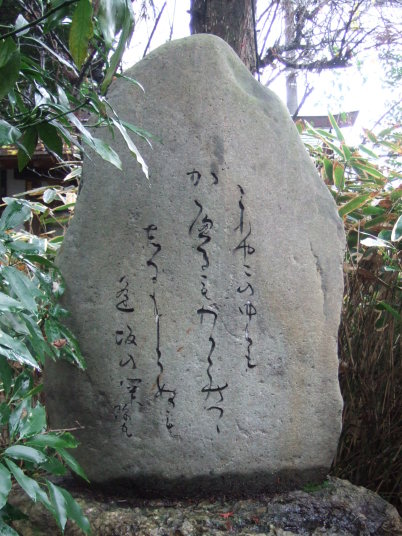 これやこのゆくも
かへるもわかれつゝ
志るもしらぬも
逢坂の関 蝉丸